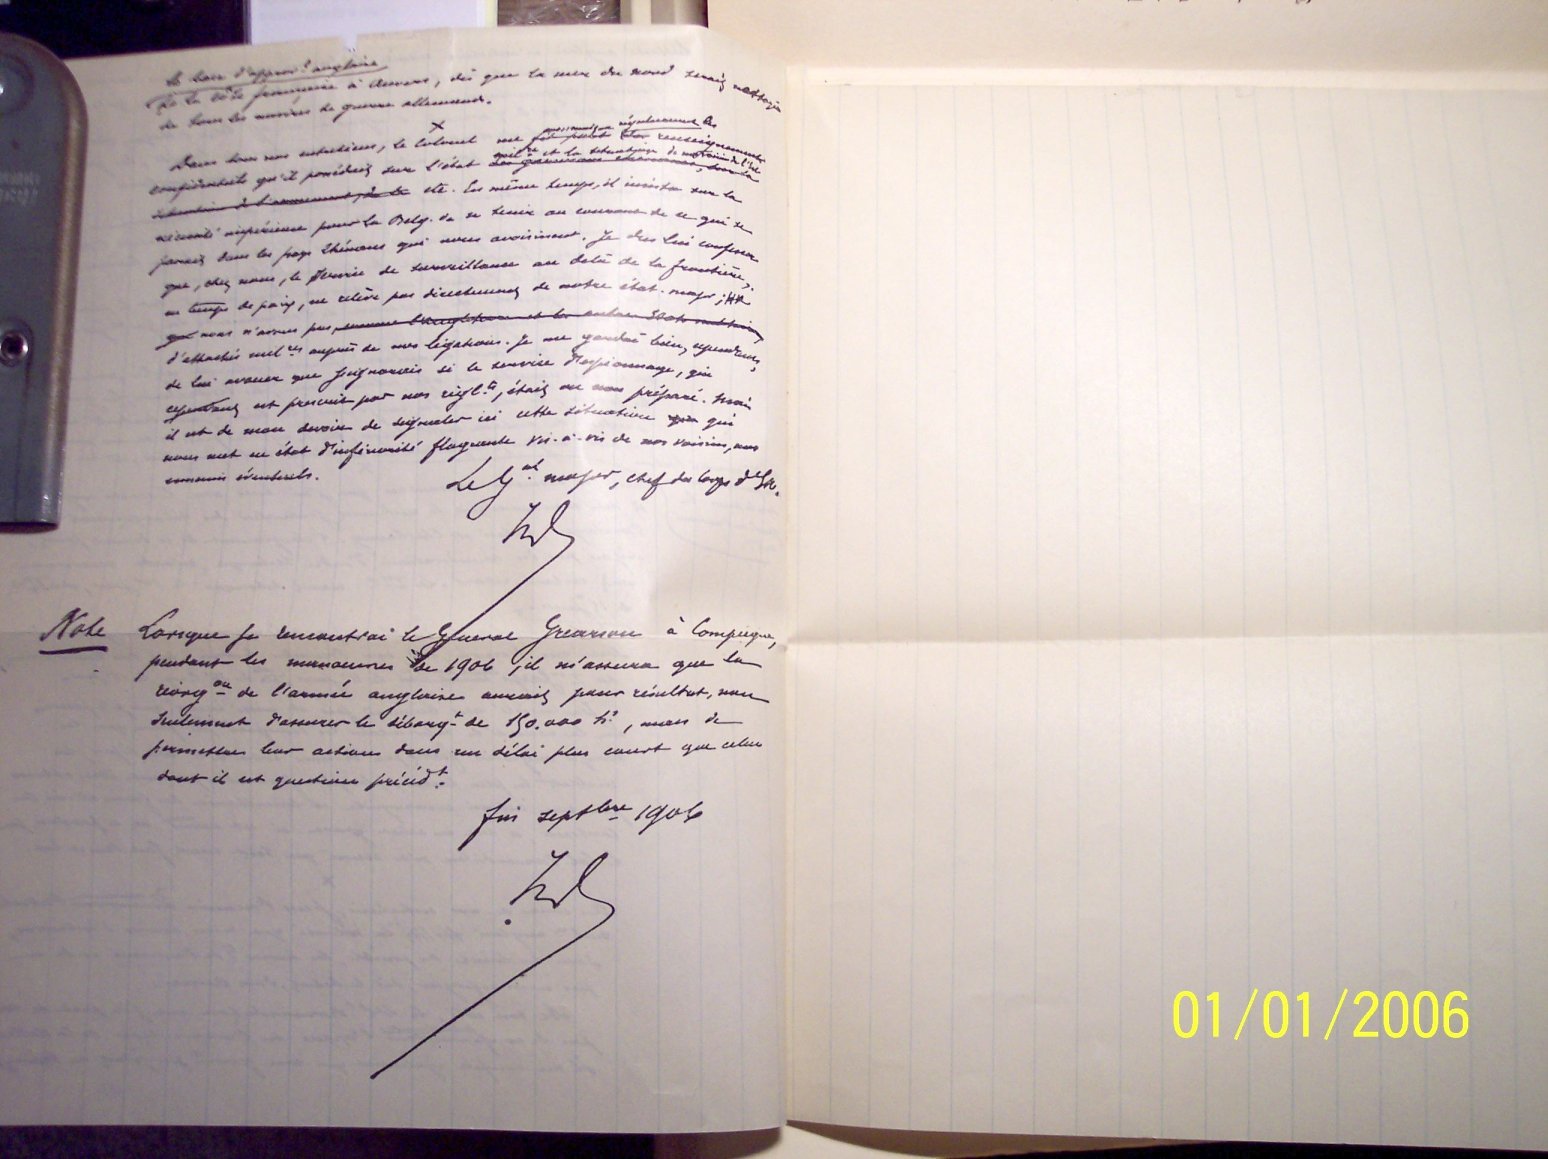 la base d'approv.t anglaise
de la côte française à Anvers, dès que la mer du Nord serait nettoyée
de tous les navires de guerre allemands.
×
Dans tous nos entretiens, le Colonel me communiqua régulièrement les renseignements
confidentiels qu'il possédait sur l'état mil.re et la situation de notre voisin de l'Est
etc. En même temps, il insista sur la
nécessité impérieuse pour la Belg. de se tenir au courant de ce qui se
passait dans les pays rhénans qui nous avoisinent. Je dus lui confesser
que, chez nous, le service de surveillance au delà de la frontière,
en temps de paix, ne relève pas directement de notre état-major ;
nous n'avons pas
d'attachés mil.res auprès de nos légations. Je me gardai bien, cependant,
de lui avouer que j'ignorais si le service d'espionnage, qui
est prescrit par nos règl.ts, était ou non préparé. Mais
il est de mon devoir de signaler ici cette situation qui
nous met en état d'infériorité flagrante vis-à-vis de nos voisins, nos
ennemis éventuels.
Le G.al major, chef du Corps d'E.M.
Note Lorsque je rencontrai le Général Grierson à Compiègne,
pendant les manœuvres de 1906, il m'assura que la
réorg.on de l'armée anglaise aurait pour résultat, non
seulement d'assurer le débarq.t de 150.000 h.s, mais de
permettre leur action dans un délai plus court que celui
dont il est question précéd.t
fin septbre 1906
01/01/2006